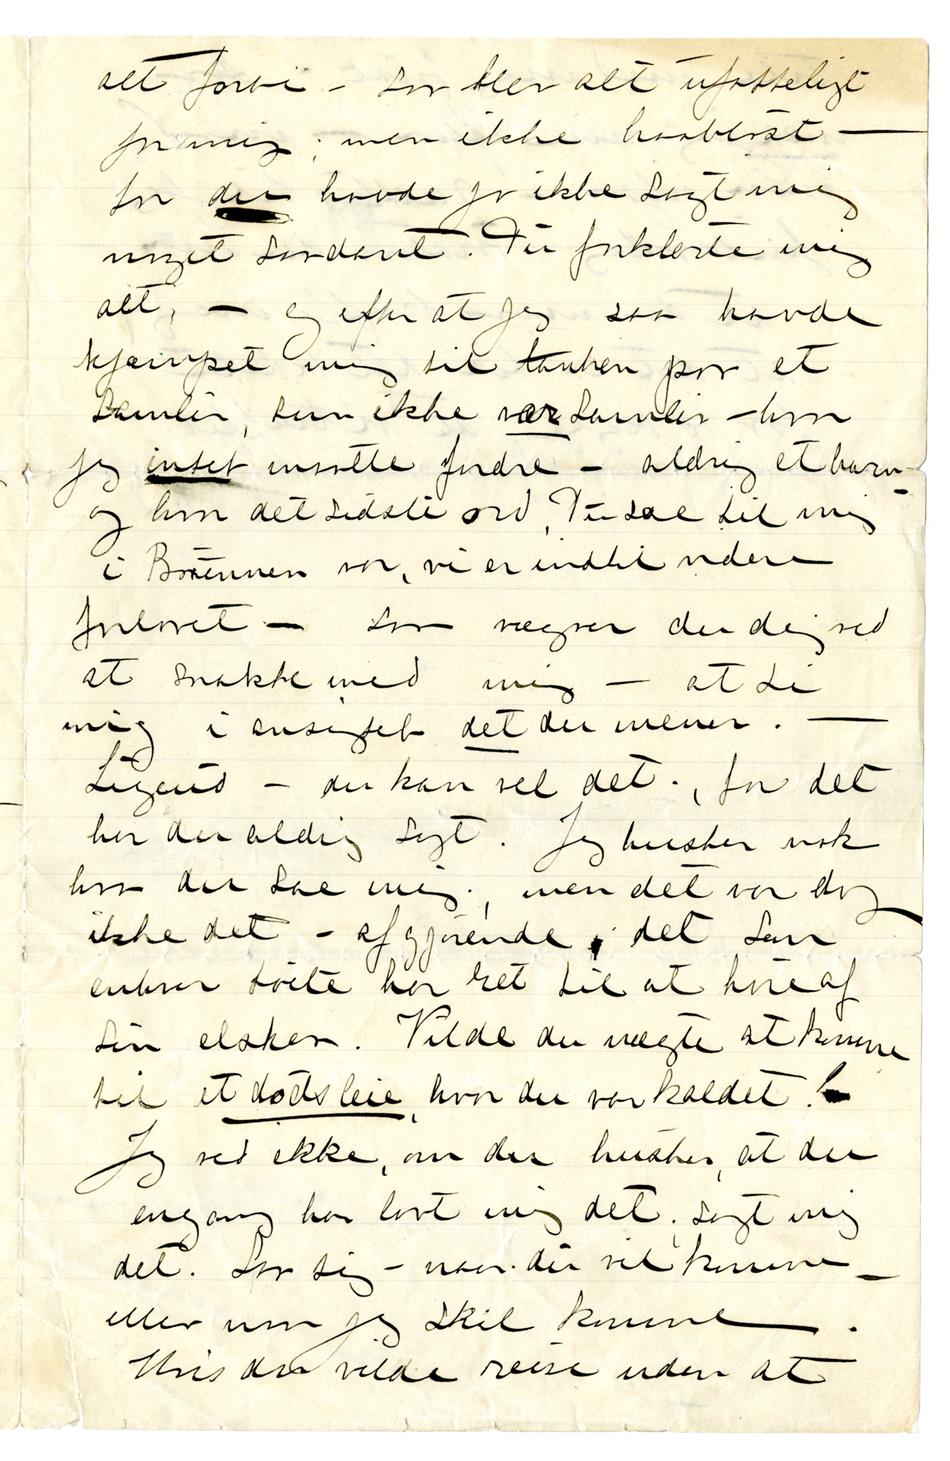 alt forbi – saa blev alt ufatteligt
for mig; men ikke haabløst —
for du havde jo ikke sagt mig
noget saadant. Du forklarte mig
alt, — og efter at jeg saa havde
kjæmpet mig til tanken paa et
samliv, som ikke var samliv – hvor
jeg intet maatte fordre – aldrig et barn –
og hvor det sidste ord, Du sae til mig
i var, vi er indtil videre
forlovet — saa vægrer du dig ved
at snakke med mig — at si
mig i ansigtet det du mener. —
Sigurd – du kan vel det, for det
har du aldrig sagt. Jeg husker nok
hva du sae mig; men det var dog
ikke det – afgjørende, det som
enhver har ret til at høre af
sin elsker. Vilde du nægte at komme
til et dødsleie, hvor du var kaldet!
Jeg ved ikke, om du husker, at du
engang har lovt mig det, sagt mig
det. Saa sig – naar du vil komme –
eller naar jeg skal komme — .
Hvis du vilde reise uden at